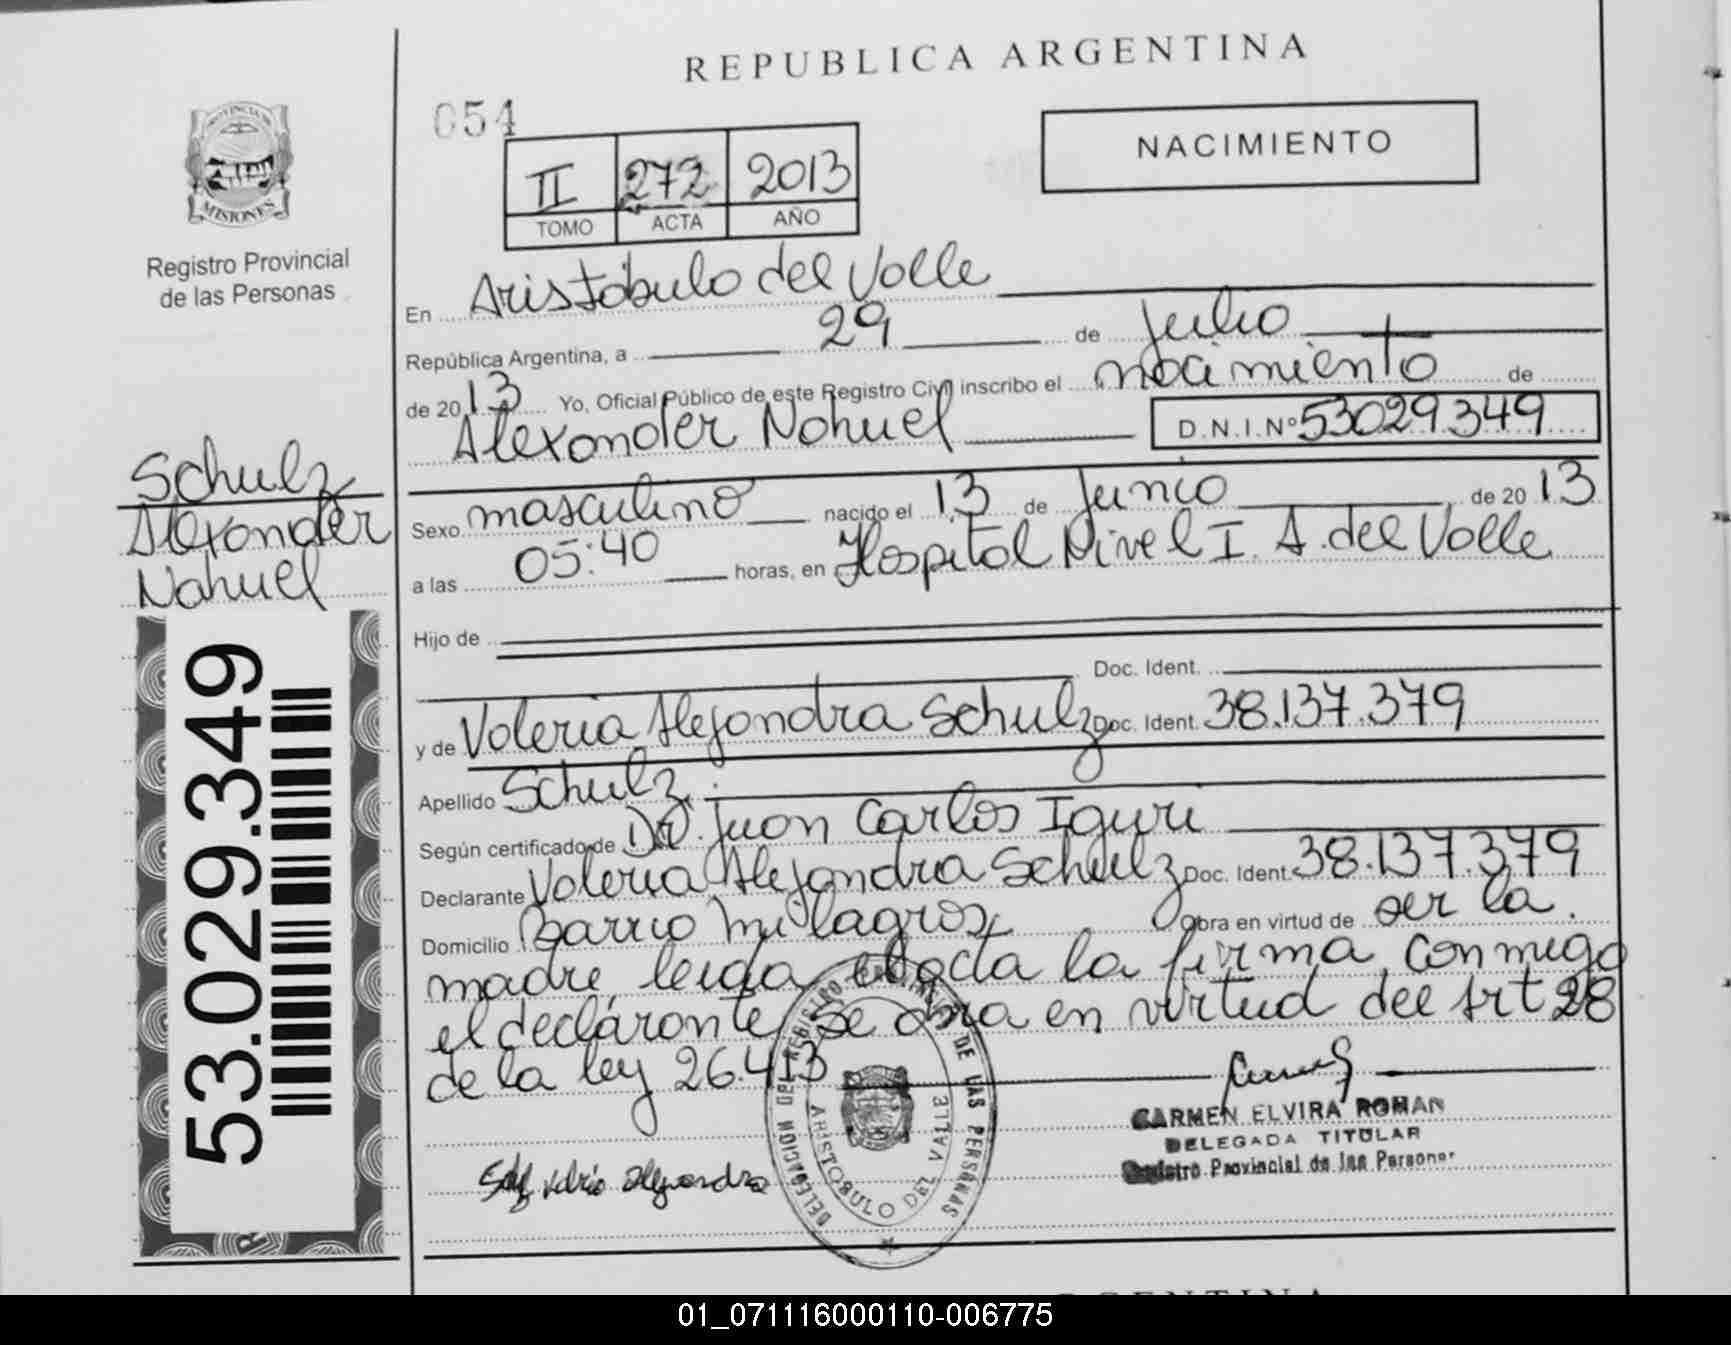 REPUBLICA ARGENTINA
054
NACIMIENTO
II 272 2013
TOMO ACTA AÑO
PROVINCIA DE
MISIONES
Registro Provincial
de las Personas
En Aristóbulo del Valle
República Argentina, a 29 de Julio
de 2013 Yo, Oficial Público de este Registro Civil inscribo el nacimiento de
Alexander Nahuel D.N.I.Nº 53029349
Schulz
Alexander
Nahuel
Sexo masculino nacido el 13 de Junio de 2013
a las 05:40 horas, en Hospital Nivel I. A. del Valle
Hijo de
Doc. Ident.
y de Valeria Alejandra Schulz Doc. Ident. 38.137.379
Apellido Schulz.
Según certificado de Dr. Juan Carlos Iguri
Declarante Valeria Alejandra Schulz Doc. Ident. 38.137.379
Domicilio Barrio Milagros Obra en virtud de ser la
madre, leida el acta la firma conmigo
el declarante, se obra en virtud del Art 28
de la ley 26.413
53.029.349
DELEGACION DEL REGISTRO PROVINCIAL DE LAS PERSONAS
ARISTOBULO DEL VALLE
CARMEN ELVIRA ROMAN
DELEGADA TITULAR
Registro Provincial de las Personas
Alejandra
01_071116000110-006775